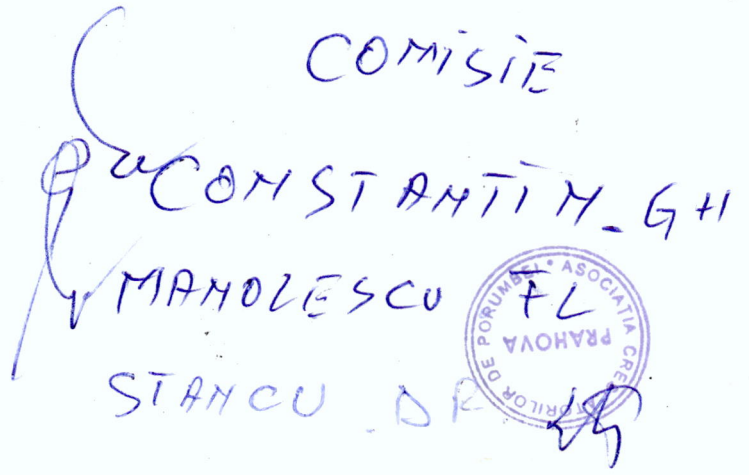 COMISIE
CONSTANTIN_GH
MANOLESCU FL
STANCU_DR
ASOCIATIA CRESCATORILOR DE PORUMBEI •
PRAHOVA